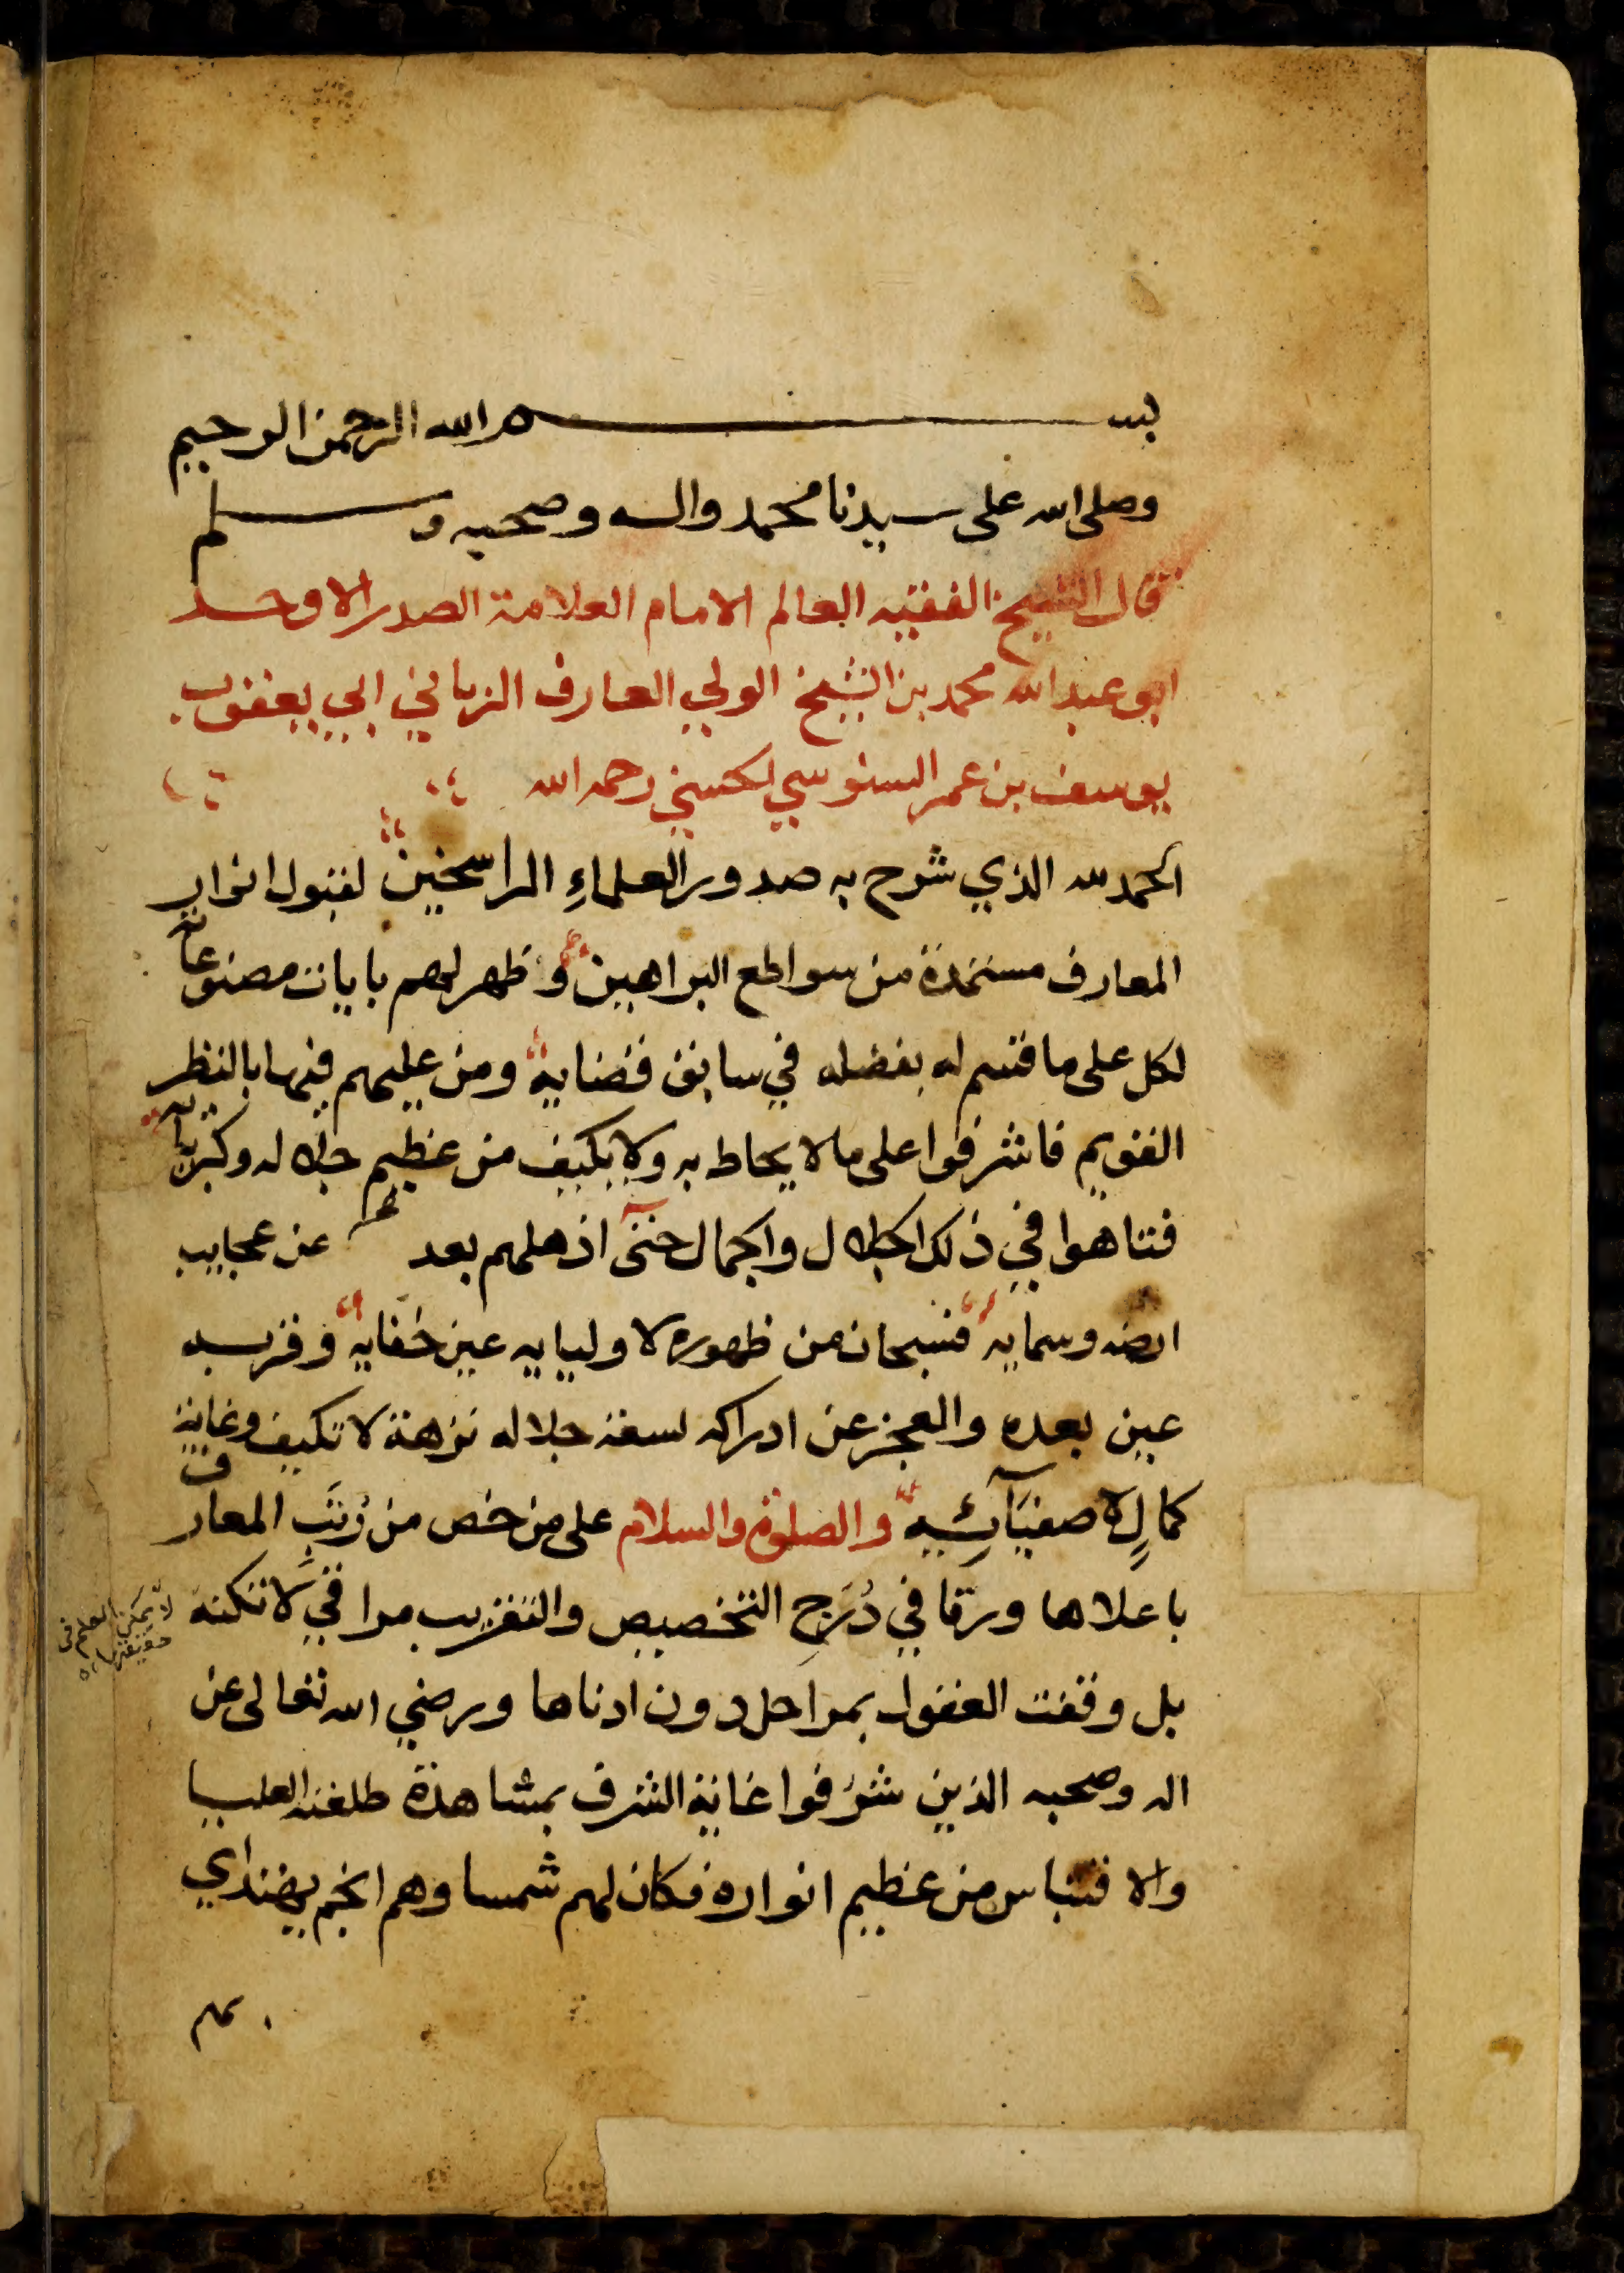 بسم الله الرحمن الرحيم
وصلى الله على سيدنا محمد واله وصحبه وسلم
قال الشيخ الفقيه العالم الامام العلامة الصدر الاوحد
ابو عبد الله محمد بن الشيخ الولي العارف الرباني ابي يعقوب
يوسف بن عمر السنوسي الحسني رحمه الله
الحمد لله الذي شرح به صدور العلماءِ الراسخين لقبول انوار
المعارف مستمدة من سواطع البراهين وظهر لهم بايات مصنوعاته
لكل على ما قسم له بفضله في سابق قضايه ومن عليهم فيها بالنظر
القويم فاشرفوا على ما لا يحاط به ولا يكيف من عظيم جلاله وكبريائه
فتاهوا في ذلك الجلال والجمال حتى اذهلهم بعد عن عجايب
ارضه وسمايه فسبحان من ظهوره لاوليايه عين خفايه وقربه
عين بعده والعجز عن ادراكه لسعة جلاله نزهة لا تكيف وغاية
كمالٍ لاصفيَآئِه والصلوة والسلام على من خص من رُتَبِ المعارف
باعلاها ورقا في دُرَجِ التخصيص والتقريب مراقي لا تكنه
لا يمكن العلم في
حقيقتها
بل وقفت العقول بمراحل دون ادناها ورضي الله تعالى عن
اله وصحبه الذين شرُفوا غاية الشرف بمشاهدة طلعته العليا
والاقتباس من عظيم انواره فكان لهم شمسا وهم انجم يهتدي
بهم